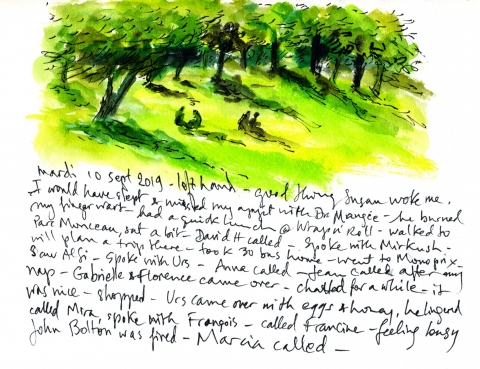 mardi 10 sept 2019 - left hand - good thing Susan woke me.
I would have slept & missed my appt with Dr. Mangée - he burned
my finger wart - had a quick lunch @ Wrap n' Roll - walked to
Parc Monceau, sat a bit - David H called - Spoke with Mirkush -
will plan a trip there - took 30 bus home - went to Monoprix -
Saw Algi - Spoke with Urs - Anne called - Jean called after my
nap - Gabrielle & Florence came over - chatted for a while - it
was nice - shopped - Urs came over with eggs & honey, he lingered
called Mira, spoke with François - called Francine - feeling lousy
John Bolton was fired - Marcia called -